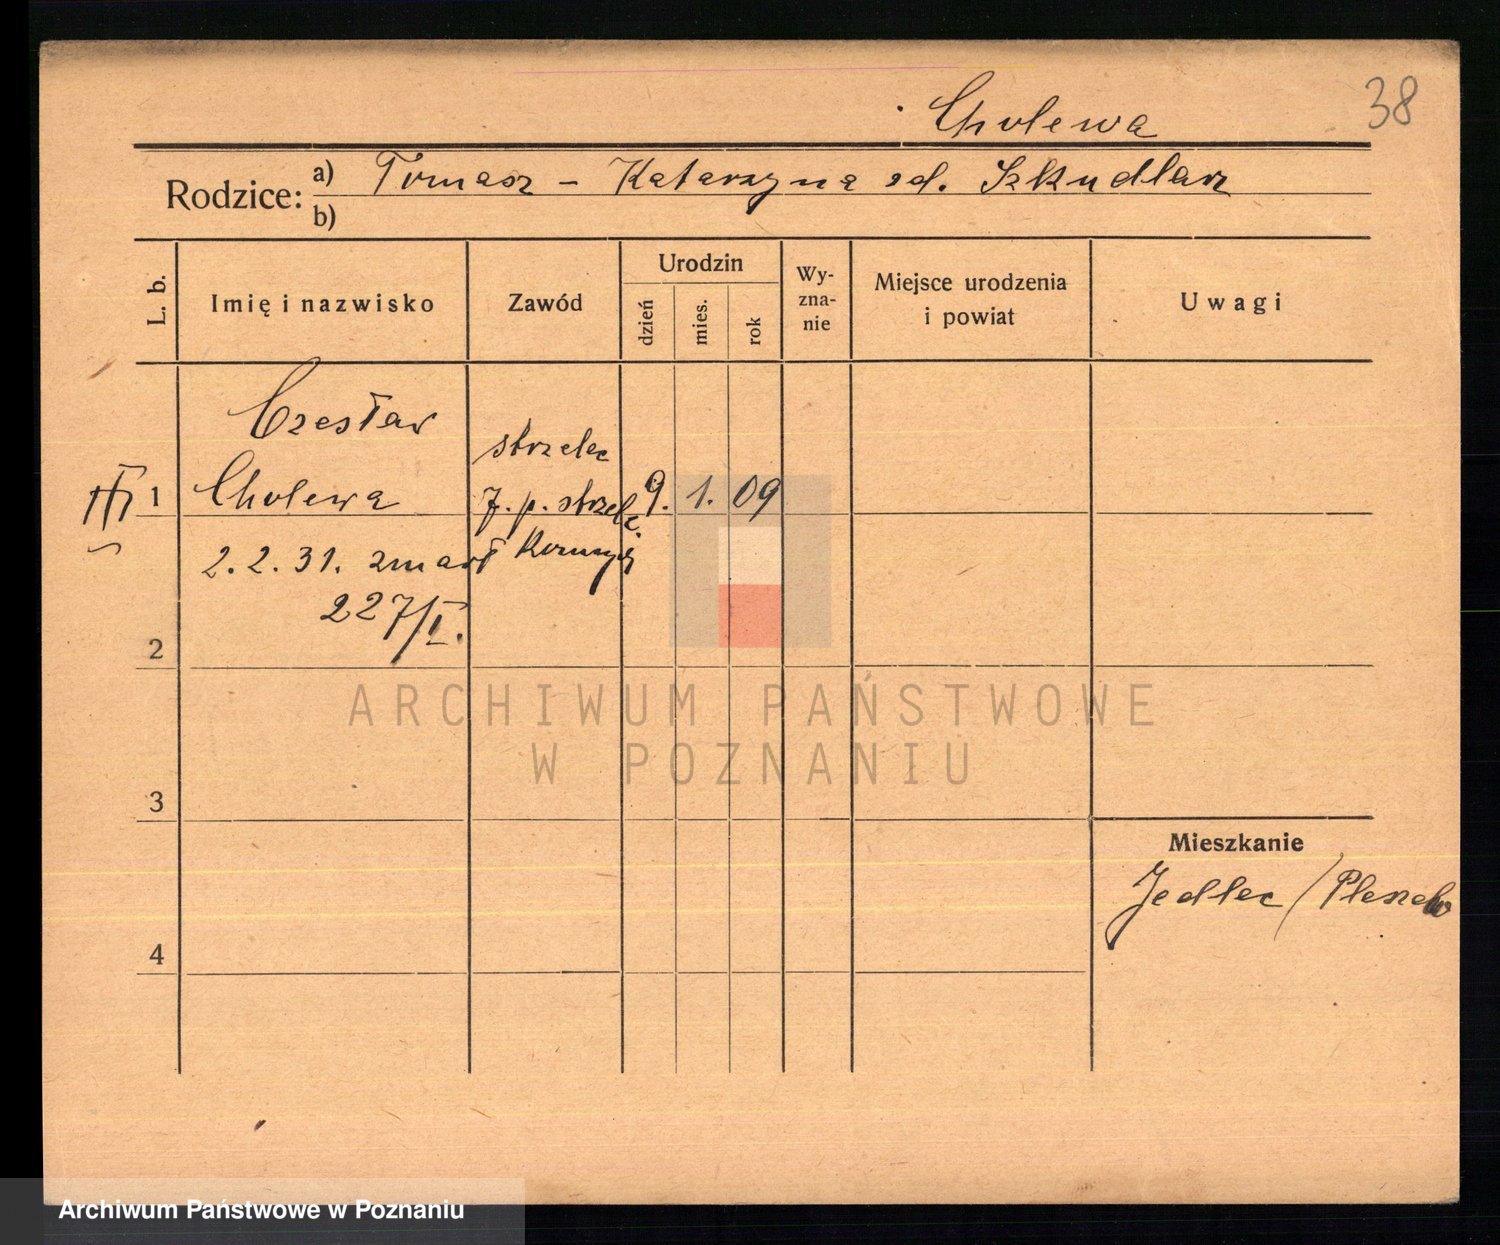 Cholewa
38
Rodzice: a) Tomasz - Katarzyna zd. Szkudlarz
b)
L. b.
Imię i nazwisko
Zawód
Urodzin
dzień
mies.
rok
Wy-
zna-
nie
Miejsce urodzenia
i powiat
Uwagi
Czesław
III 1 Cholewa
strzelec
7. p. strzelc.
Konnych
9. 1. 09
2.2.31. zmarł
227/I.
2
ARCHIWUM PAŃSTWOWE
W POZNANIU
3
Mieszkanie
Jedlec / Pleszew
4
Archiwum Państwowe w Poznaniu